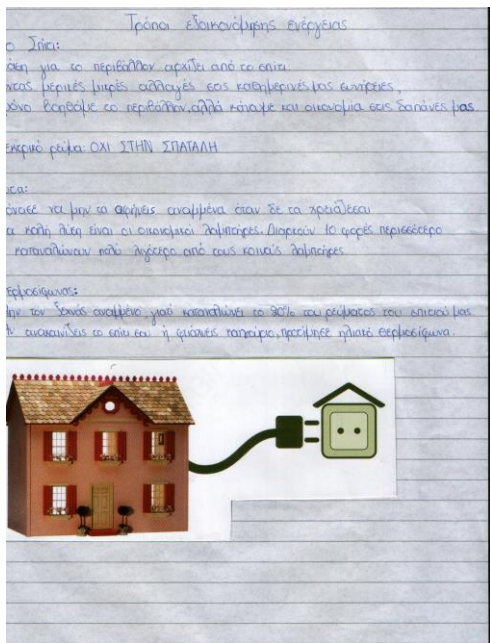 Τρόποι εξοικονόμησης ενέργειας
ο Σπίτι:
για το περιβάλλον αρχίζει από το σπίτι.
μερικές μικρές αλλαγές στις καθημερινές μας συνήθειες,
βοηθάμε το περιβάλλον, αλλά κάνουμε και οικονομία στις δαπάνες μας.
ρεύμα: ΟΧΙ ΣΤΗΝ ΣΠΑΤΑΛΗ
να μην τα αφήνεις αναμμένα όταν δε τα χρειάζεσαι
α καλή λύση είναι οι οικονομικοί λαμπτήρες. Διαρκούν 10 φορές περισσότερο
καταναλώνουν πολύ λιγότερο από τους κοινούς λαμπτήρες
ερμοσίφωνας:
τον ξανάς αναμμένο, γιατί καταναλώνει το 30% του ρεύματος του σπιτιού μας.
ανακαινίζεις το σπίτι σου ή φτιάχνεις καινούριο, προτίμησε ηλιακό θερμοσίφωνα.